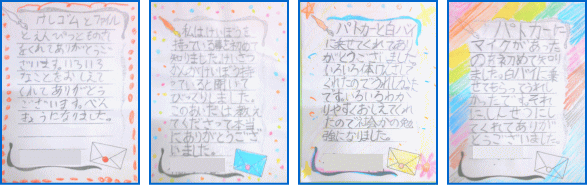 けしゴムとファイル
とえんぴつをくださ
をくれてありがとうご
ざいます。いろいろ
なことをおしえて
くれてありがとう
ございます。べん
きょうになりました。
私はけいぼうを
持っている事を初めて
知りました。けいさつ
を持
ていると聞いて
びっくりしました。
このあいだは教え
てくださってほんま
にありがとうござ
いました。
パトカーと白バイ
に乗せてくれてあり
がとうございました。
いろいろ体けんさして
くれたのでうれしかった
です。いろいろわか
りやすくおしえてくれ
たので社会の勉
強になりました。
パトカーに
マイクがあった
のを初めて知り
ました。白バイに乗
せてもらってうれし
かったです。それ
にしんせつにし
てくれてありが
とうございました。